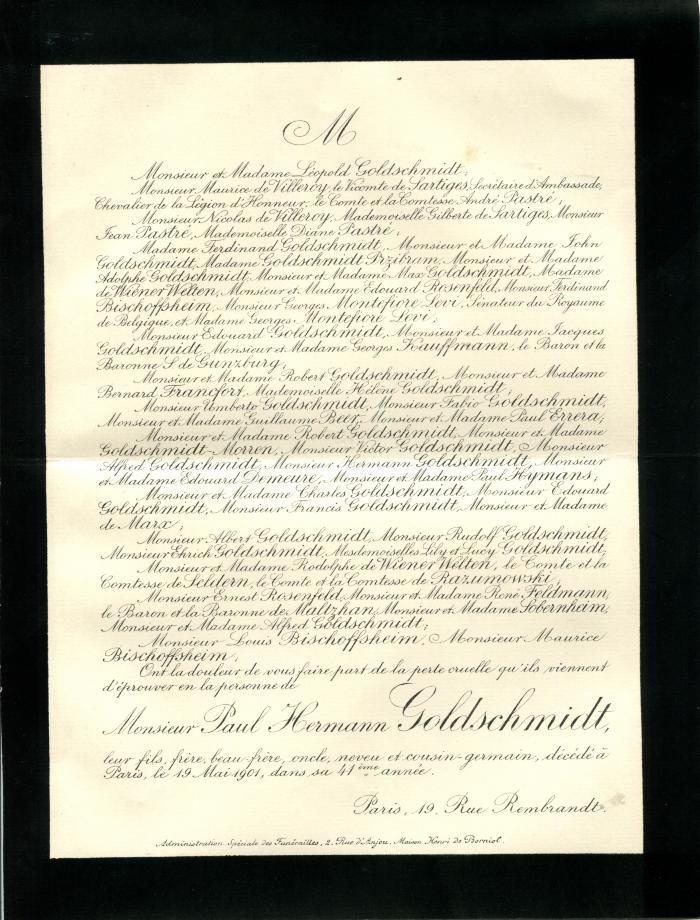 M
Monsieur et Madame Léopold Goldschmidt,
Monsieur Maurice de Villeroy, le Vicomte de Sartiges, Secrétaire d'Ambassade,
Chevalier de la Légion d'Honneur, le Comte et la Comtesse André Pastré,
Monsieur Nicolas de Villeroy, Mademoiselle Gilberte de Sartiges, Monsieur
Jean Pastré, Mademoiselle Diane Pastré;
Madame Ferdinand Goldschmidt, Monsieur et Madame John
Goldschmidt, Madame Goldschmidt Przibram, Monsieur et Madame
Adolphe Goldschmidt, Monsieur et Madame Max Goldschmidt, Madame
de Wiener Welten, Monsieur et Madame Edouard Rosenfeld, Monsieur Ferdinand
Bischoffsheim, Monsieur Georges Montefiore Levi, Sénateur du Royaume
de Belgique, et Madame Georges Montefiore Levi;
Monsieur Edouard Goldschmidt, Monsieur et Madame Jacques
Goldschmidt, Monsieur et Madame Georges Kauffmann, le Baron et la
Baronne S. de Gunzburg;
Monsieur et Madame Robert Goldschmidt, Monsieur et Madame
Bernard Francfort, Mademoiselle Hélène Goldschmidt;
Monsieur Umberto Goldschmidt, Monsieur Fabio Goldschmidt,
Monsieur et Madame Guillaume Beer, Monsieur et Madame Paul Errera;
Monsieur et Madame Robert Goldschmidt, Monsieur et Madame
Goldschmidt-Morren, Monsieur Victor Goldschmidt, Monsieur
Alfred Goldschmidt, Monsieur Hermann Goldschmidt, Monsieur
et Madame Edouard Demeure, Monsieur et Madame Paul Hymans;
Monsieur et Madame Charles Goldschmidt, Monsieur Edouard
Goldschmidt, Monsieur Francis Goldschmidt, Monsieur et Madame
de Marx;
Monsieur Albert Goldschmidt, Monsieur Rudolf Goldschmidt,
Monsieur Ehrich Goldschmidt, Mesdemoiselles Lily et Lucy Goldschmidt,
Monsieur et Madame Rodolphe de Wiener Welten, le Comte et la
Comtesse de Seldern, le Comte et la Comtesse de Razumowski,
Monsieur Ernest Rosenfeld, Monsieur et Madame René Feldmann,
le Baron et la Baronne de Maltzhan, Monsieur et Madame Sobernheim,
Monsieur et Madame Alfred Goldschmidt;
Monsieur Louis Bischoffsheim, Monsieur Maurice
Bischoffsheim,
Ont la douleur de vous faire part de la perte cruelle qu'ils viennent
d'éprouver en la personne de
Monsieur Paul Hermann Goldschmidt,
leur fils, frère, beau-frère, oncle, neveu et cousin-germain, décédé à
Paris, le 19 Mai 1901, dans sa 41ème année.
Paris, 19, Rue Rembrandt.
Administration Spéciale des Funérailles, 2, Rue d'Anjou, Maison Henri de Borniol.